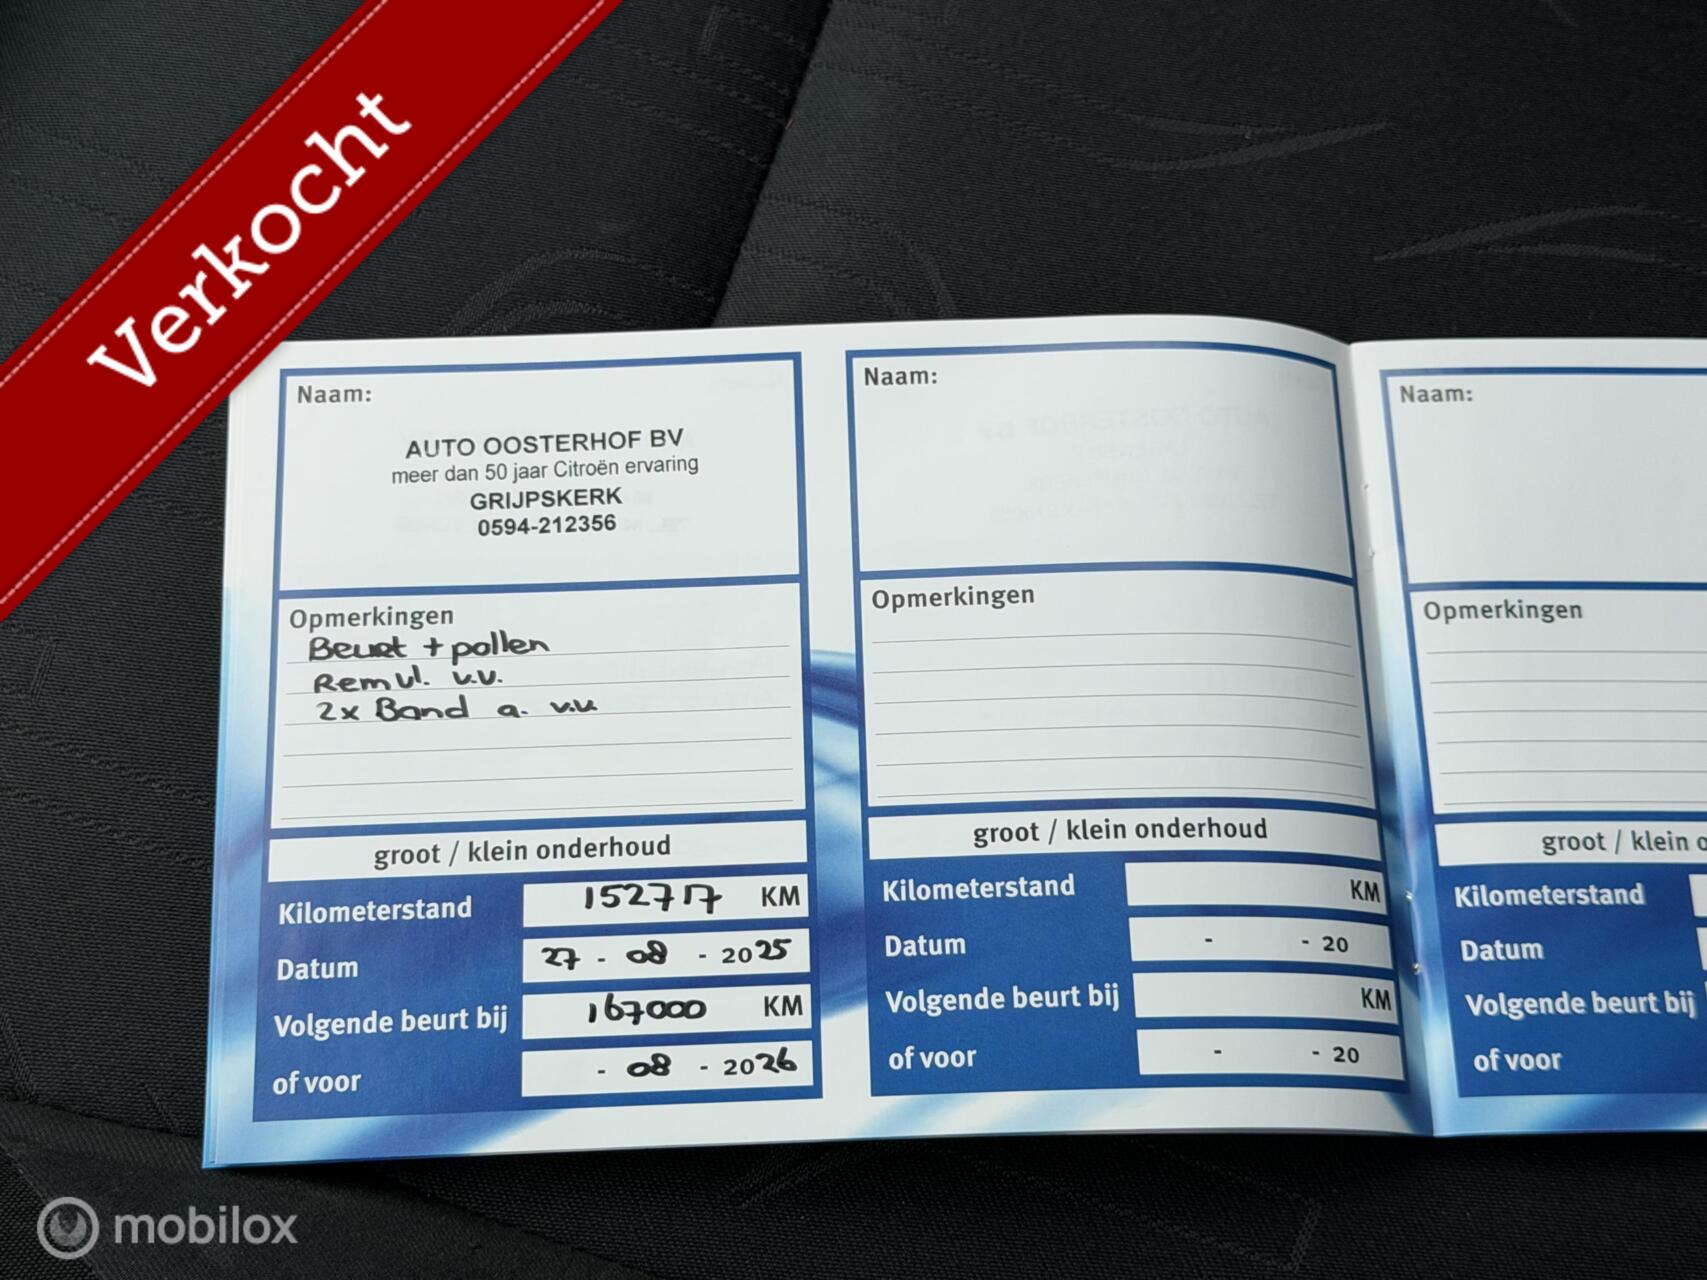 Verkocht
Naam:
AUTO OOSTERHOF BV
meer dan 50 jaar Citroën ervaring
GRIJPSKERK
0594-212356
Opmerkingen
Beurt + pollen
Rem vl. v.v.
2x Band a. v.v.
groot / klein onderhoud
Kilometerstand 152717 KM
Datum 27 - 08 - 2025
Volgende beurt bij 167000 KM
of voor - 08 - 2026
Naam:
Opmerkingen
groot / klein onderhoud
Kilometerstand KM
Datum - - 20
Volgende beurt bij KM
of voor - - 20
Naam:
Opmerkingen
groot / klein o
Kilometerstand
Datum
Volgende beurt bij
of voor
mobilox